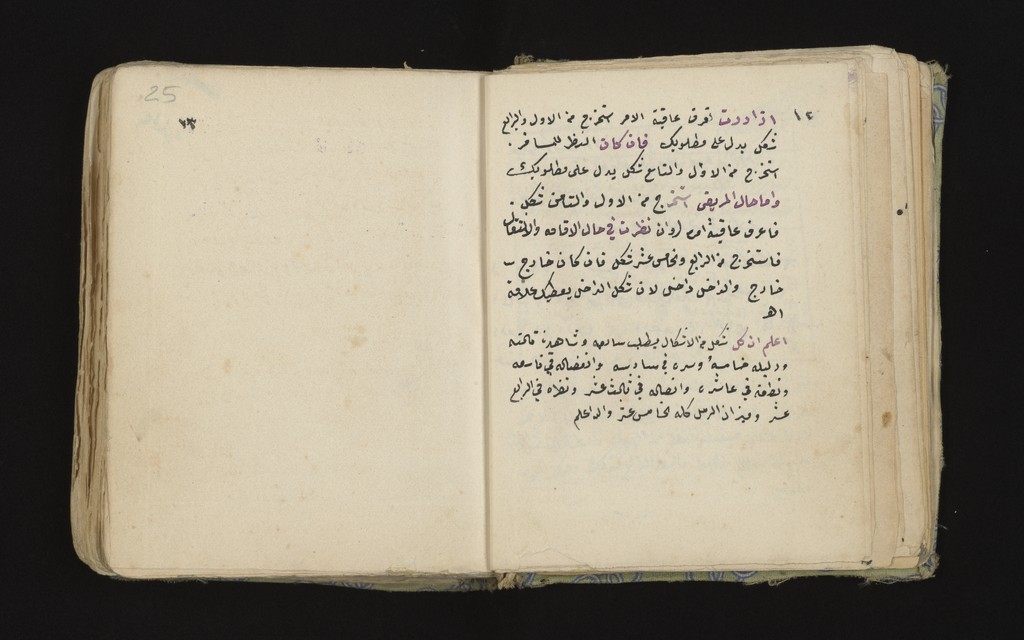 ١٢
اذا اردت تعرف عاقبة الامر استخرج من الاول والرابع
شكل يدل على مطلوبك فان كان النظر للمسافر .
استخرج من الاول والتاسع شكل يدل على مطلوبك
واما حال المريض استخرج من الاول والثامن شكل .
فاعرف عاقبة امره وان نظرت في حال الاقامه والانتقال
فاستخرج من الرابع وخامس عشر شكل فان كان خارج
خارج والداخل داخل لان شكل الداخل يعطيك علاقة
اهـ
اعلم ان كل شكل من الاشكال يطلب سابعه وشاهده ثالثه
ودليله خامسه وسره في سادسه وانفصاله في تاسعه
ونطقه في عاشره واتصاله في ثالث عشر ونظره في الرابع
عشر وميزان الرمل كله الخامس عشر والله اعلم
25